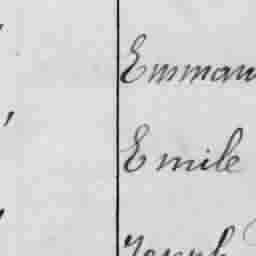 Emman
Emile
Joseph